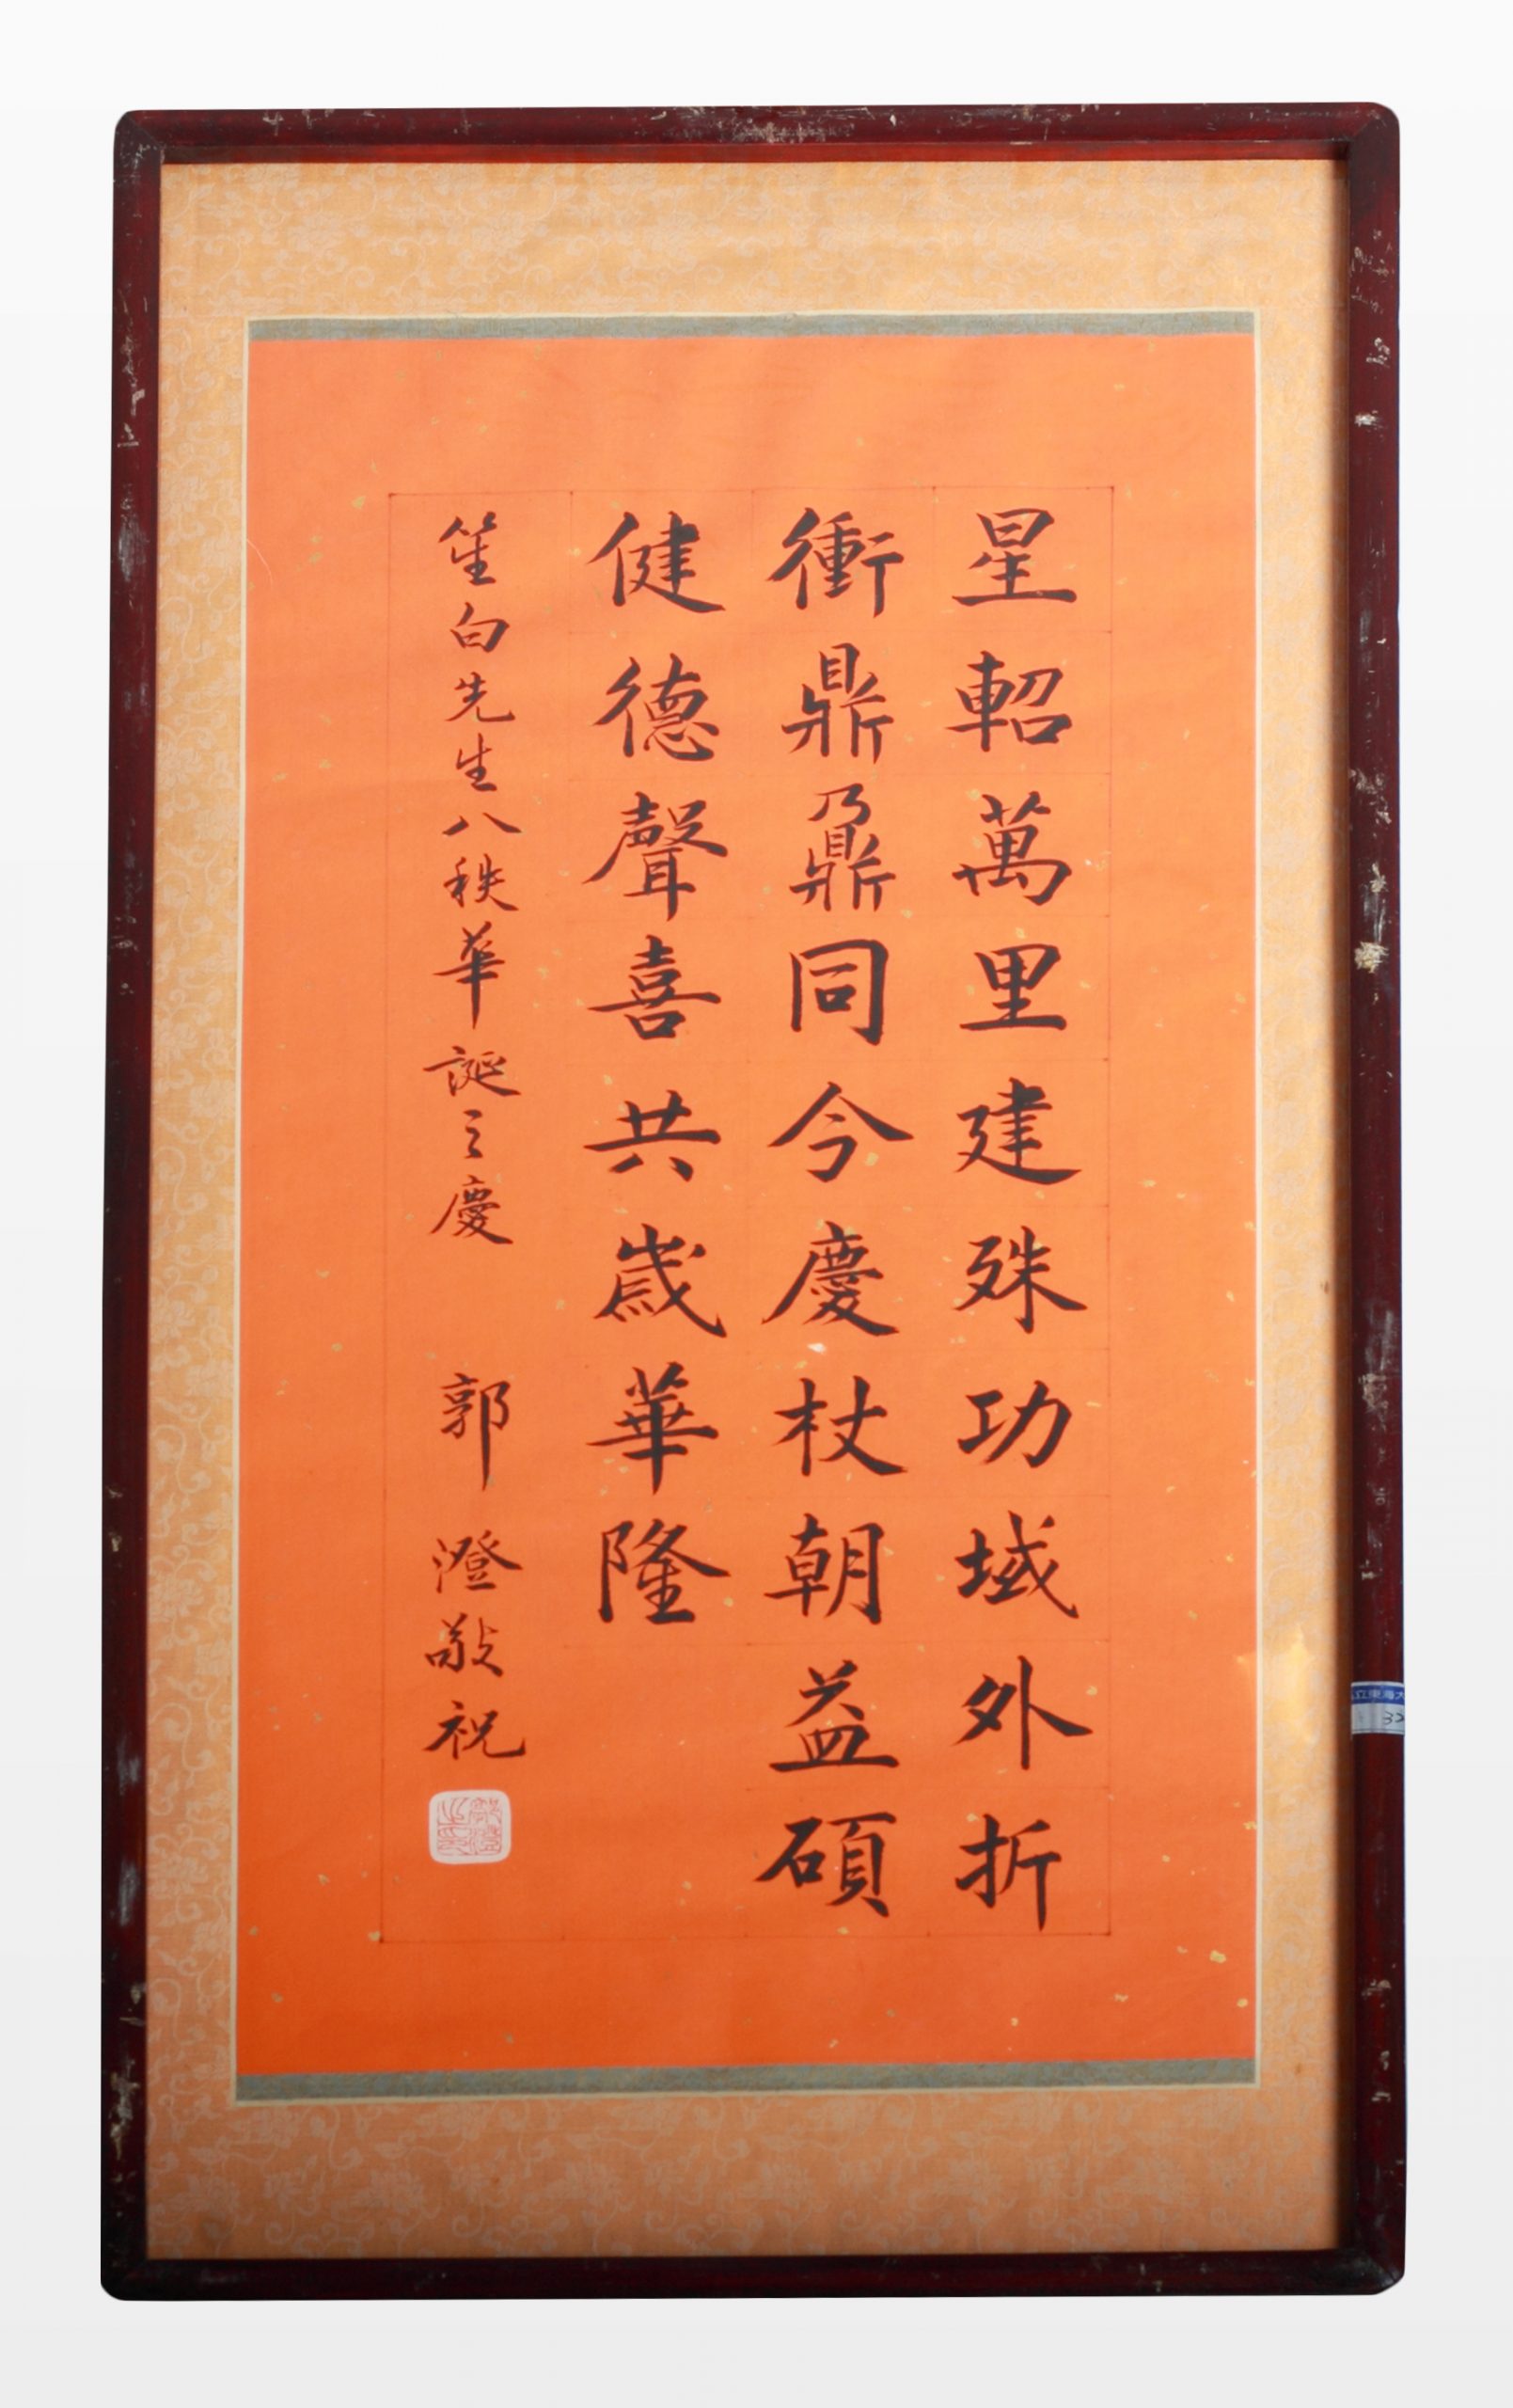 星軺萬里建殊功域外折
衝鼎鼐同今慶杖朝益碩
健德聲喜共歲華隆
笙白先生八秩華誕之慶 郭澄敬祝
郭澄之印
立東海大
32